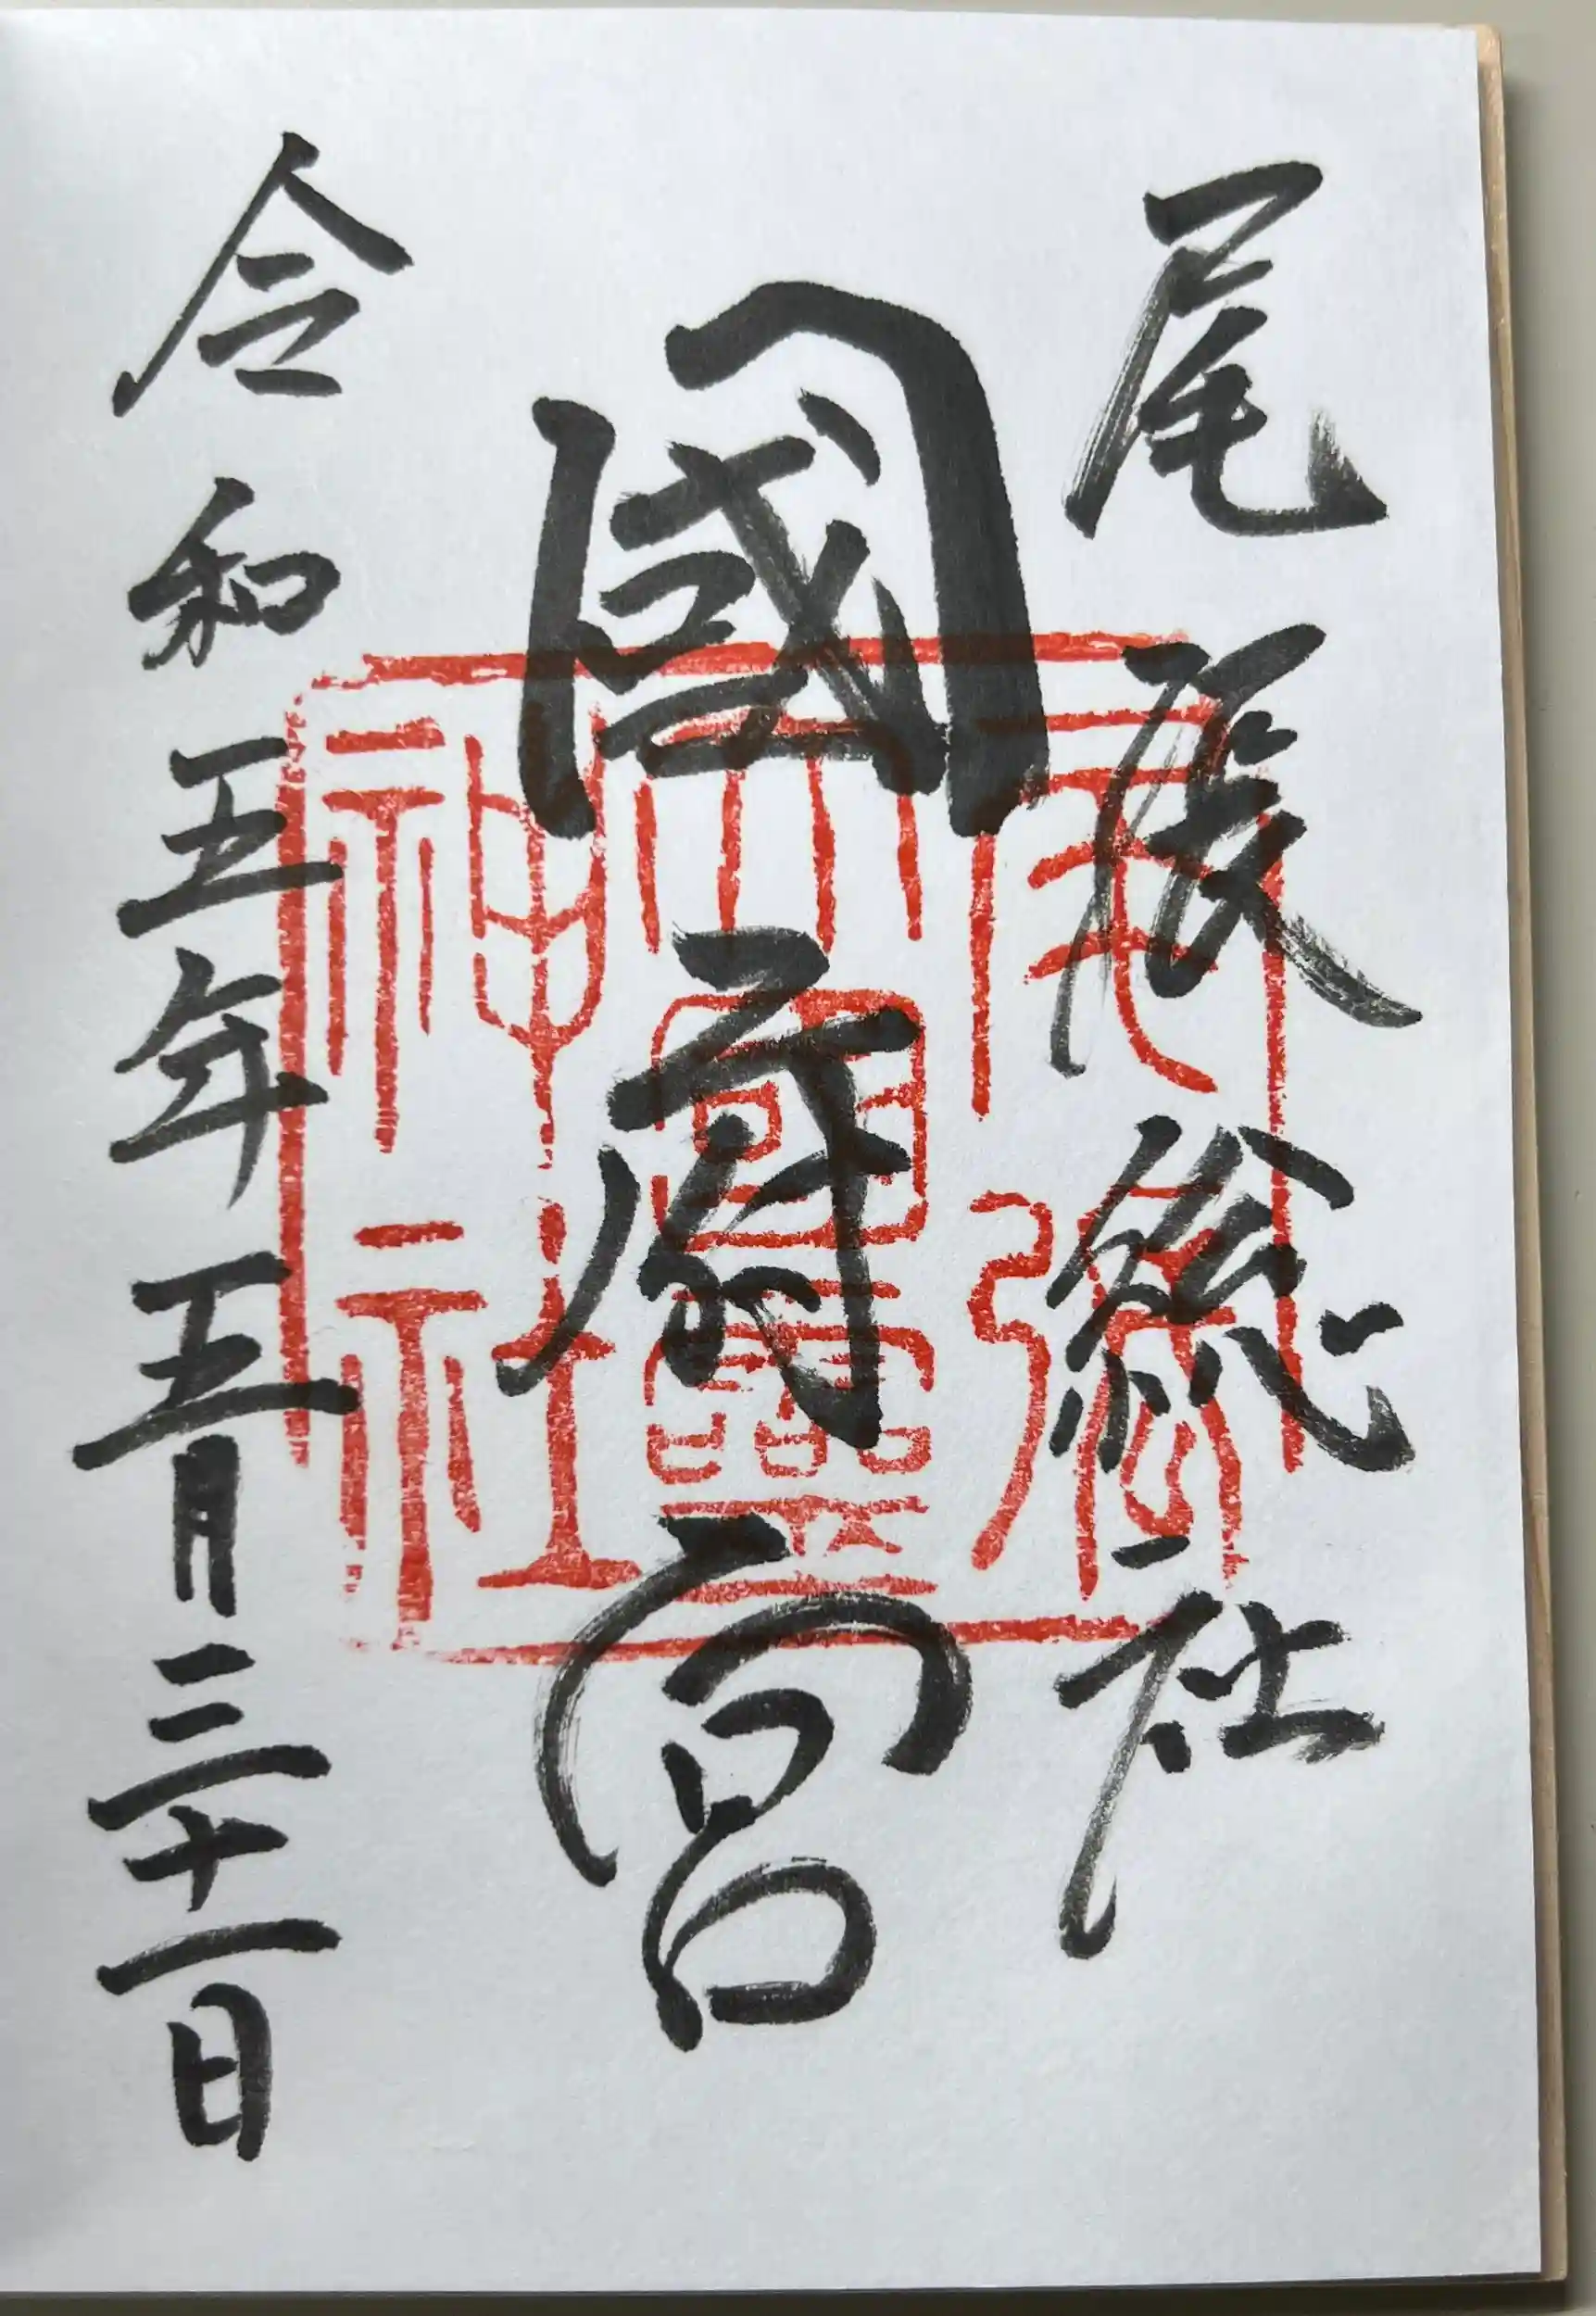 尾張総社
國府宮
令和五年五月三十一日
尾張大國霊神社